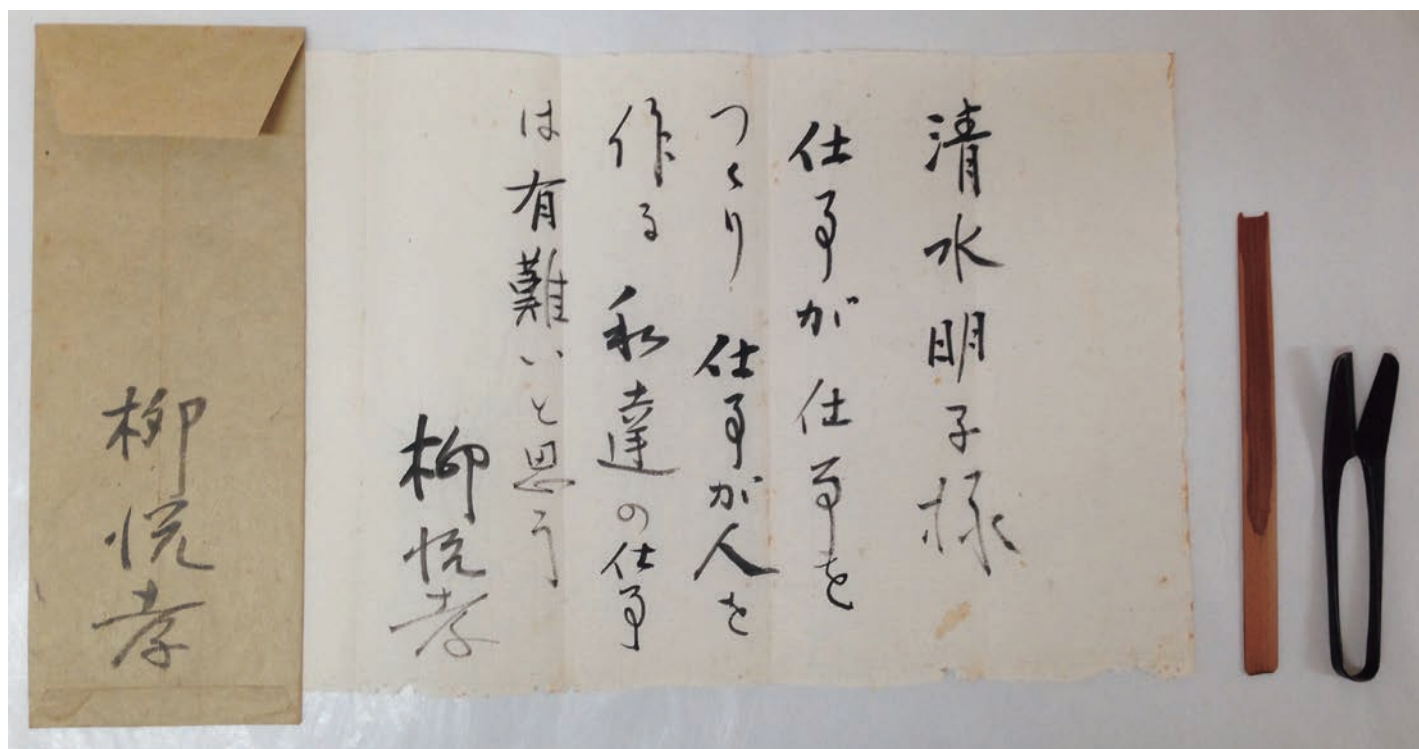 清水明子様
仕事が仕事を
つくり仕事が人を
作る私達の仕事
は有難いと思う
柳悦孝
柳悦孝